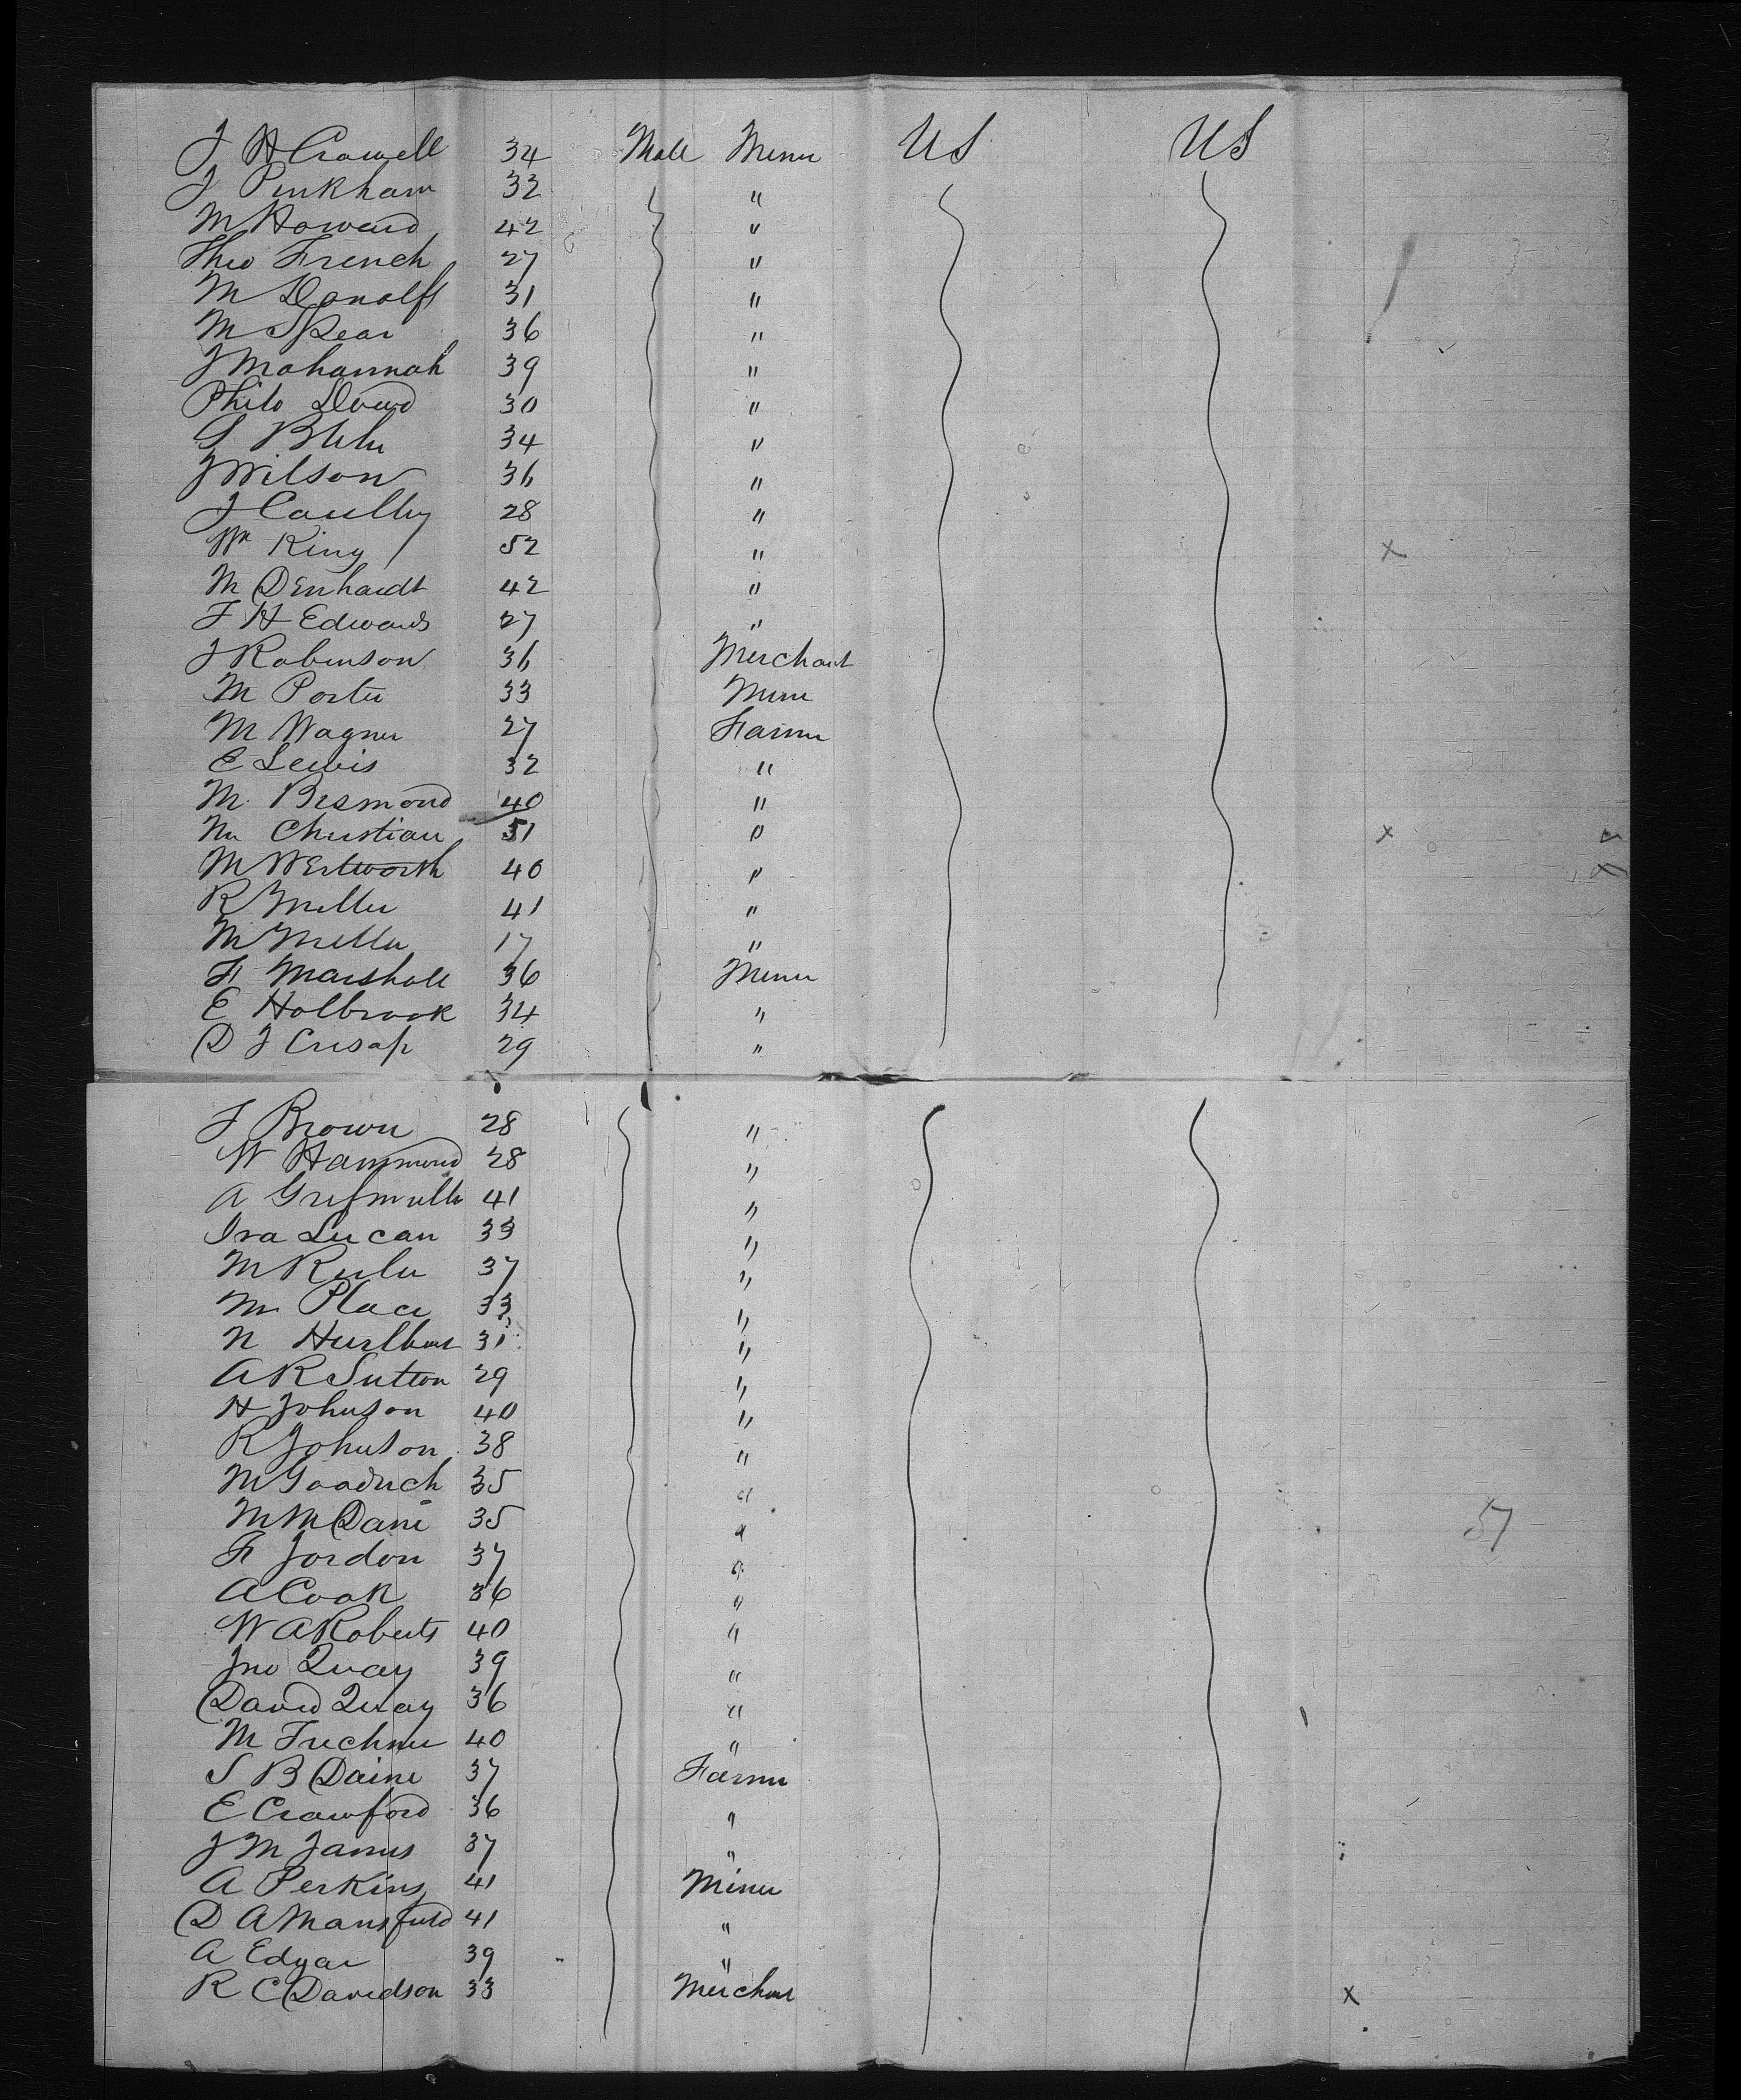 J H Crowell 34 Male Miner US US
J Pinkham 32 "
M Howard 42 "
Theo French 27 "
M 31 "
M Spear 36 "
J Mahannah 39 "
Philo Dowd 30 "
S 34 "
J Wilson 36 "
J 28 "
Wm King 52 "
M Denhardt 42 "
F H Edwards 27 "
J Robinson 36 Merchant
M Porter 33 Miner
M Wagner 27 Farmer
E Lewis 32 "
M Besmond 40 "
M Christian 51 " x
M Wentworth 40 "
R Miller 41 "
M Miller 17 "
F Marshall 36 Miner
E Holbrook 34 "
D J Cresap 29 "
F Brown 28 "
W Hammond 28 "
A 41 "
Ira Lucan 33 "
M 37 "
M Place 33 "
N Hurlbut 31 "
A R Sutton 29 "
H Johnson 40 "
R Johnson 38 "
M Goodrich 35 "
M M Dane 35 " 57
F Jordon 37 "
A Cook 36 "
W A Roberts 40 "
Jno Quay 39 "
David Quay 36 "
M 40 "
S B Daine 37 Farmer
E Crawford 36 "
J M James 37 "
A Perkins 41 Miner
D A Mansfield 41 "
A Edgar 39 "
R C Davidson 33 Merchant x